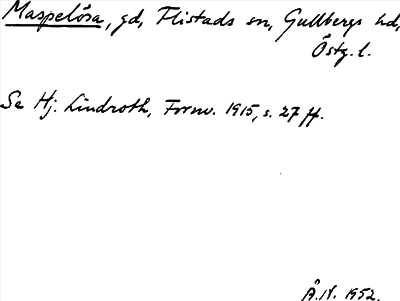 Maspelösa, gd, Flistads sn, Gullbergs hd,
Östg. l.
Se Hj. Lindroth, Fornv. 1915, s. 27 ff.
Å.N. 1952.